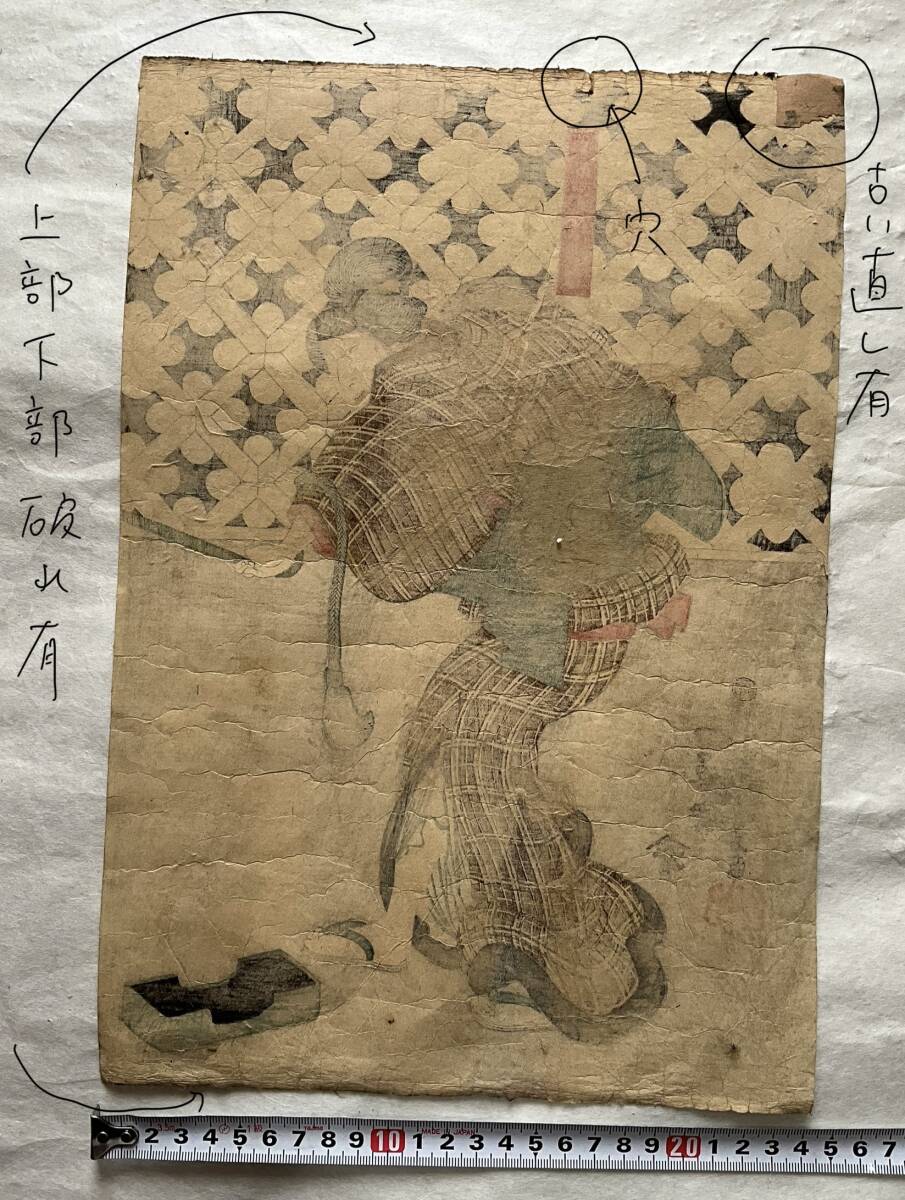 穴
古い直し有
上部下部破れ有
2 3 4 5 6 7 8 9 10 1 2 3 4 5 6 7 8 9 20 1 2 3 4 5 6 7
MADE IN JAPAN